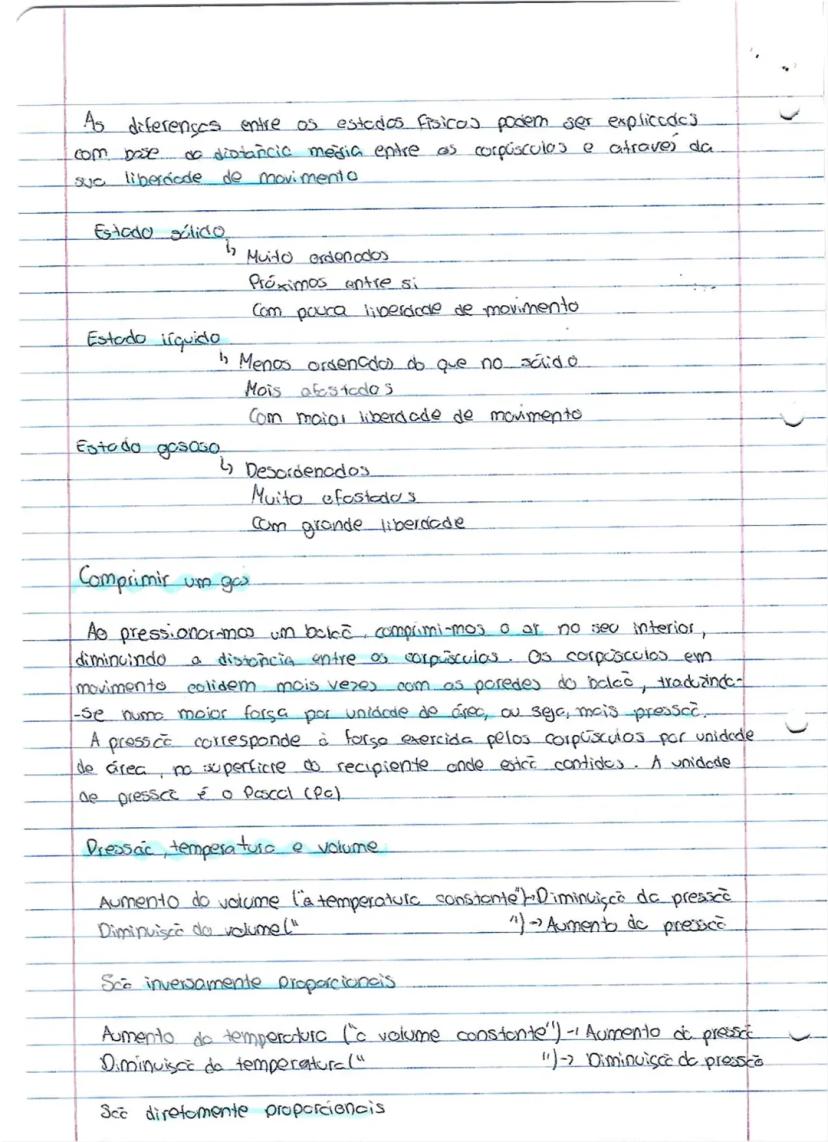 As diferenças entre os estados físicos podem ser explicadas
com base ao distância média entre os corpúsculos e através da
sua liberdade de movimento
Estado sólido
↳ Muito ordenados
Próximos entre si
Com pouca liberdade de movimento
Estado líquido
↳ Menos ordenados do que no sólido
Mais afastados
Com maior liberdade de movimento
Estado gasoso
↳ Desordenados
Muito afastados
Com grande liberdade
Comprimir um gas
Ao pressionar-mos um balão, comprimi-mos o ar no seu interior,
diminuindo a distância entre os corpúsculos. Os corpúsculos em
movimento colidem mais vezes com as paredes do balão, traduzindo-
-se numa maior força por unidade de área, ou seja, mais pressão.
A pressão corresponde à força exercida pelos corpúsculos por unidade
de área, na superfície do recipiente onde estão contidos. A unidade
de pressão é o Pascal (Pa)
Pressão, temperatura e volume
Aumento do volume ("à temperatura constante")→Diminuição da pressão
Diminuição do volume(" ")→Aumento da pressão
São inversamente proporcionais
Aumento da temperatura ("a volume constante")→Aumento da pressão
Diminuição da temperatura(" ")→ Diminuição da pressão
São diretamente proporcionais